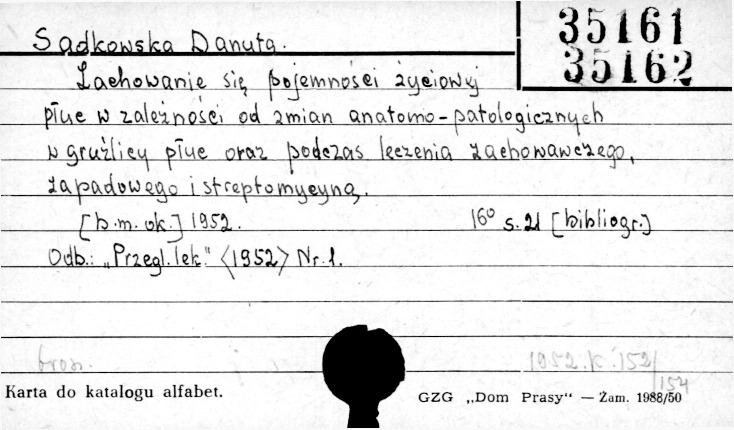 35161
35162
Sądkowska Danuta.
Zachowanie się pojemności życiowej
płuc w zależności od zmian anatomo-patologicznych
w gruźlicy płuc oraz podczas leczenia zachowawczego,
zapadowego i streptomycyną.
[b.m. ok.] 1952. 16° s. 21 [bibliogr.]
Odb.: „Przegl. lek." <1952> Nr. 1.
bros. 1952.K.152/
154
Karta do katalogu alfabet. GZG „Dom Prasy" — Zam. 1988/50